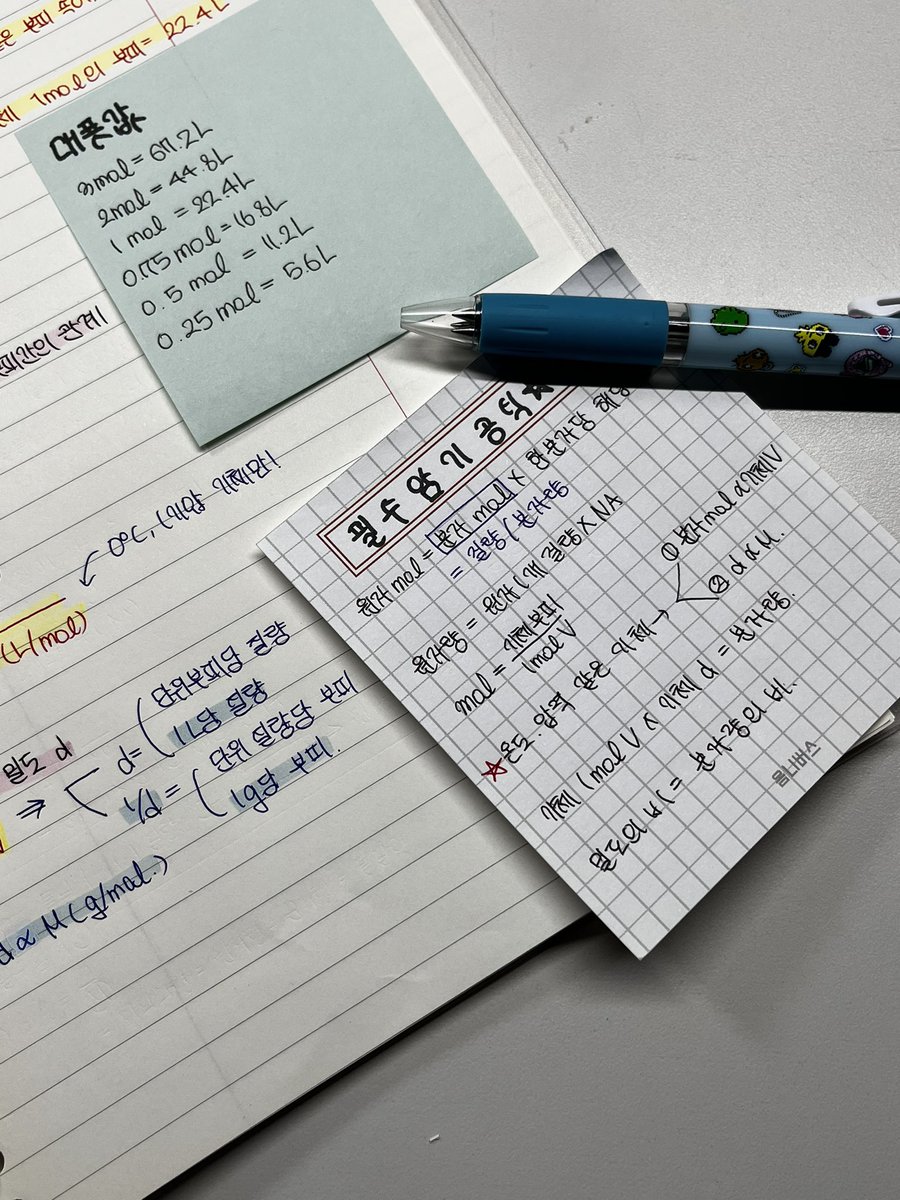 1mol의 부피= 22.4L
대푯값
3mol= 67.2L
2mol= 44.8L
1 mol = 22.4L
0.75 mol= 16.8L
0.5 mol = 11.2L
0.25 mol= 5.6L
관계
0℃, 1기압 기체만!
(L/mol)
밀도 d
⇒ d= ( 단위부피당 질량
1L당 질량
1/d = ( 단위 질량당 부피
1g당 부피.
d ∝ M(g/mol.)
필수암기 공식☆
원자 mol = 분자 mol × 한분자당 해당
= 질량/분자량
원자량 = 원자 1개 질량 × NA
mol = 기체부피/1mol V
☆온도.압력 같은 기체→ ① 분자mol ∝ 기체V
② d ∝ M.
기체 1mol V × 기체 d = 분자량.
밀도의 비 = 분자량의 비.
옴니버스